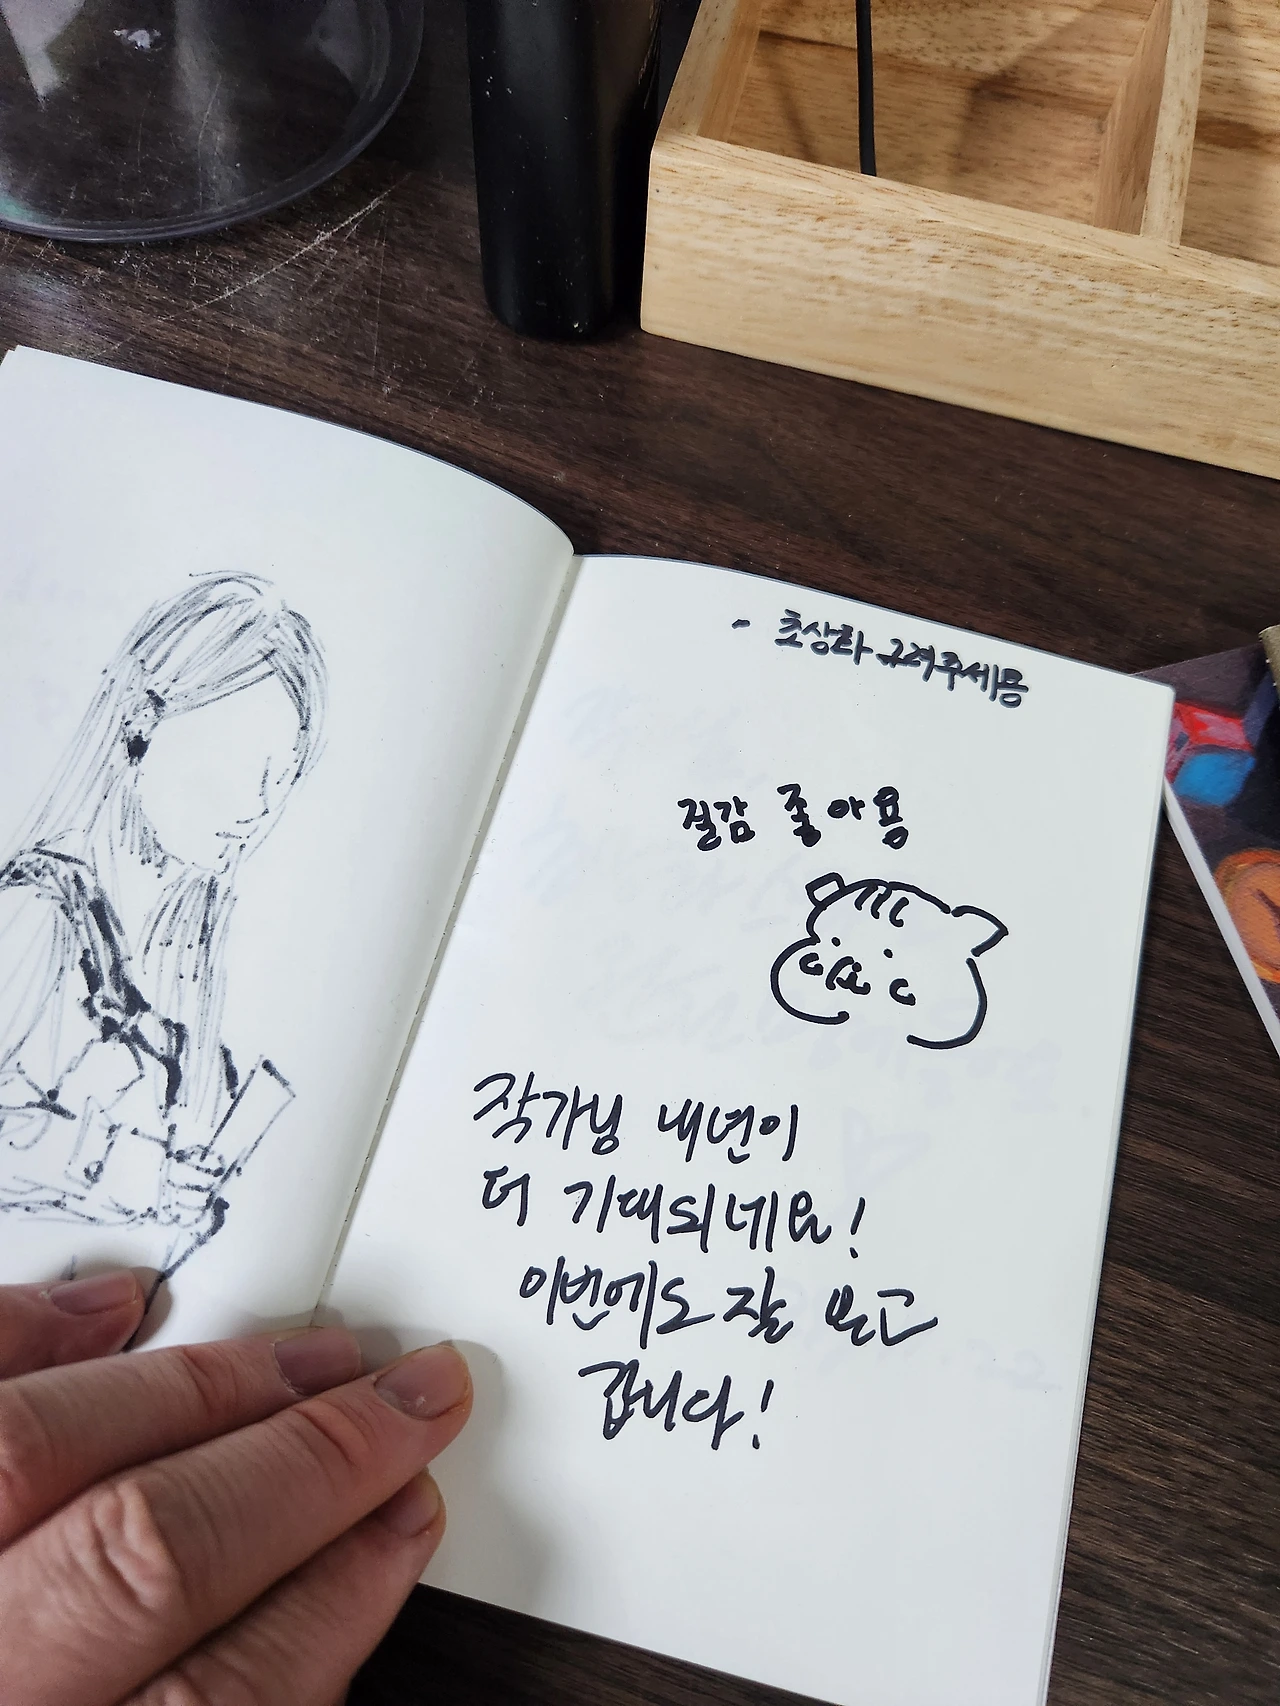 - 초상화 그려주세용
질감 좋아용
작가님 내년이
더 기대되네요!
이번에도 잘 보고
갑니다!